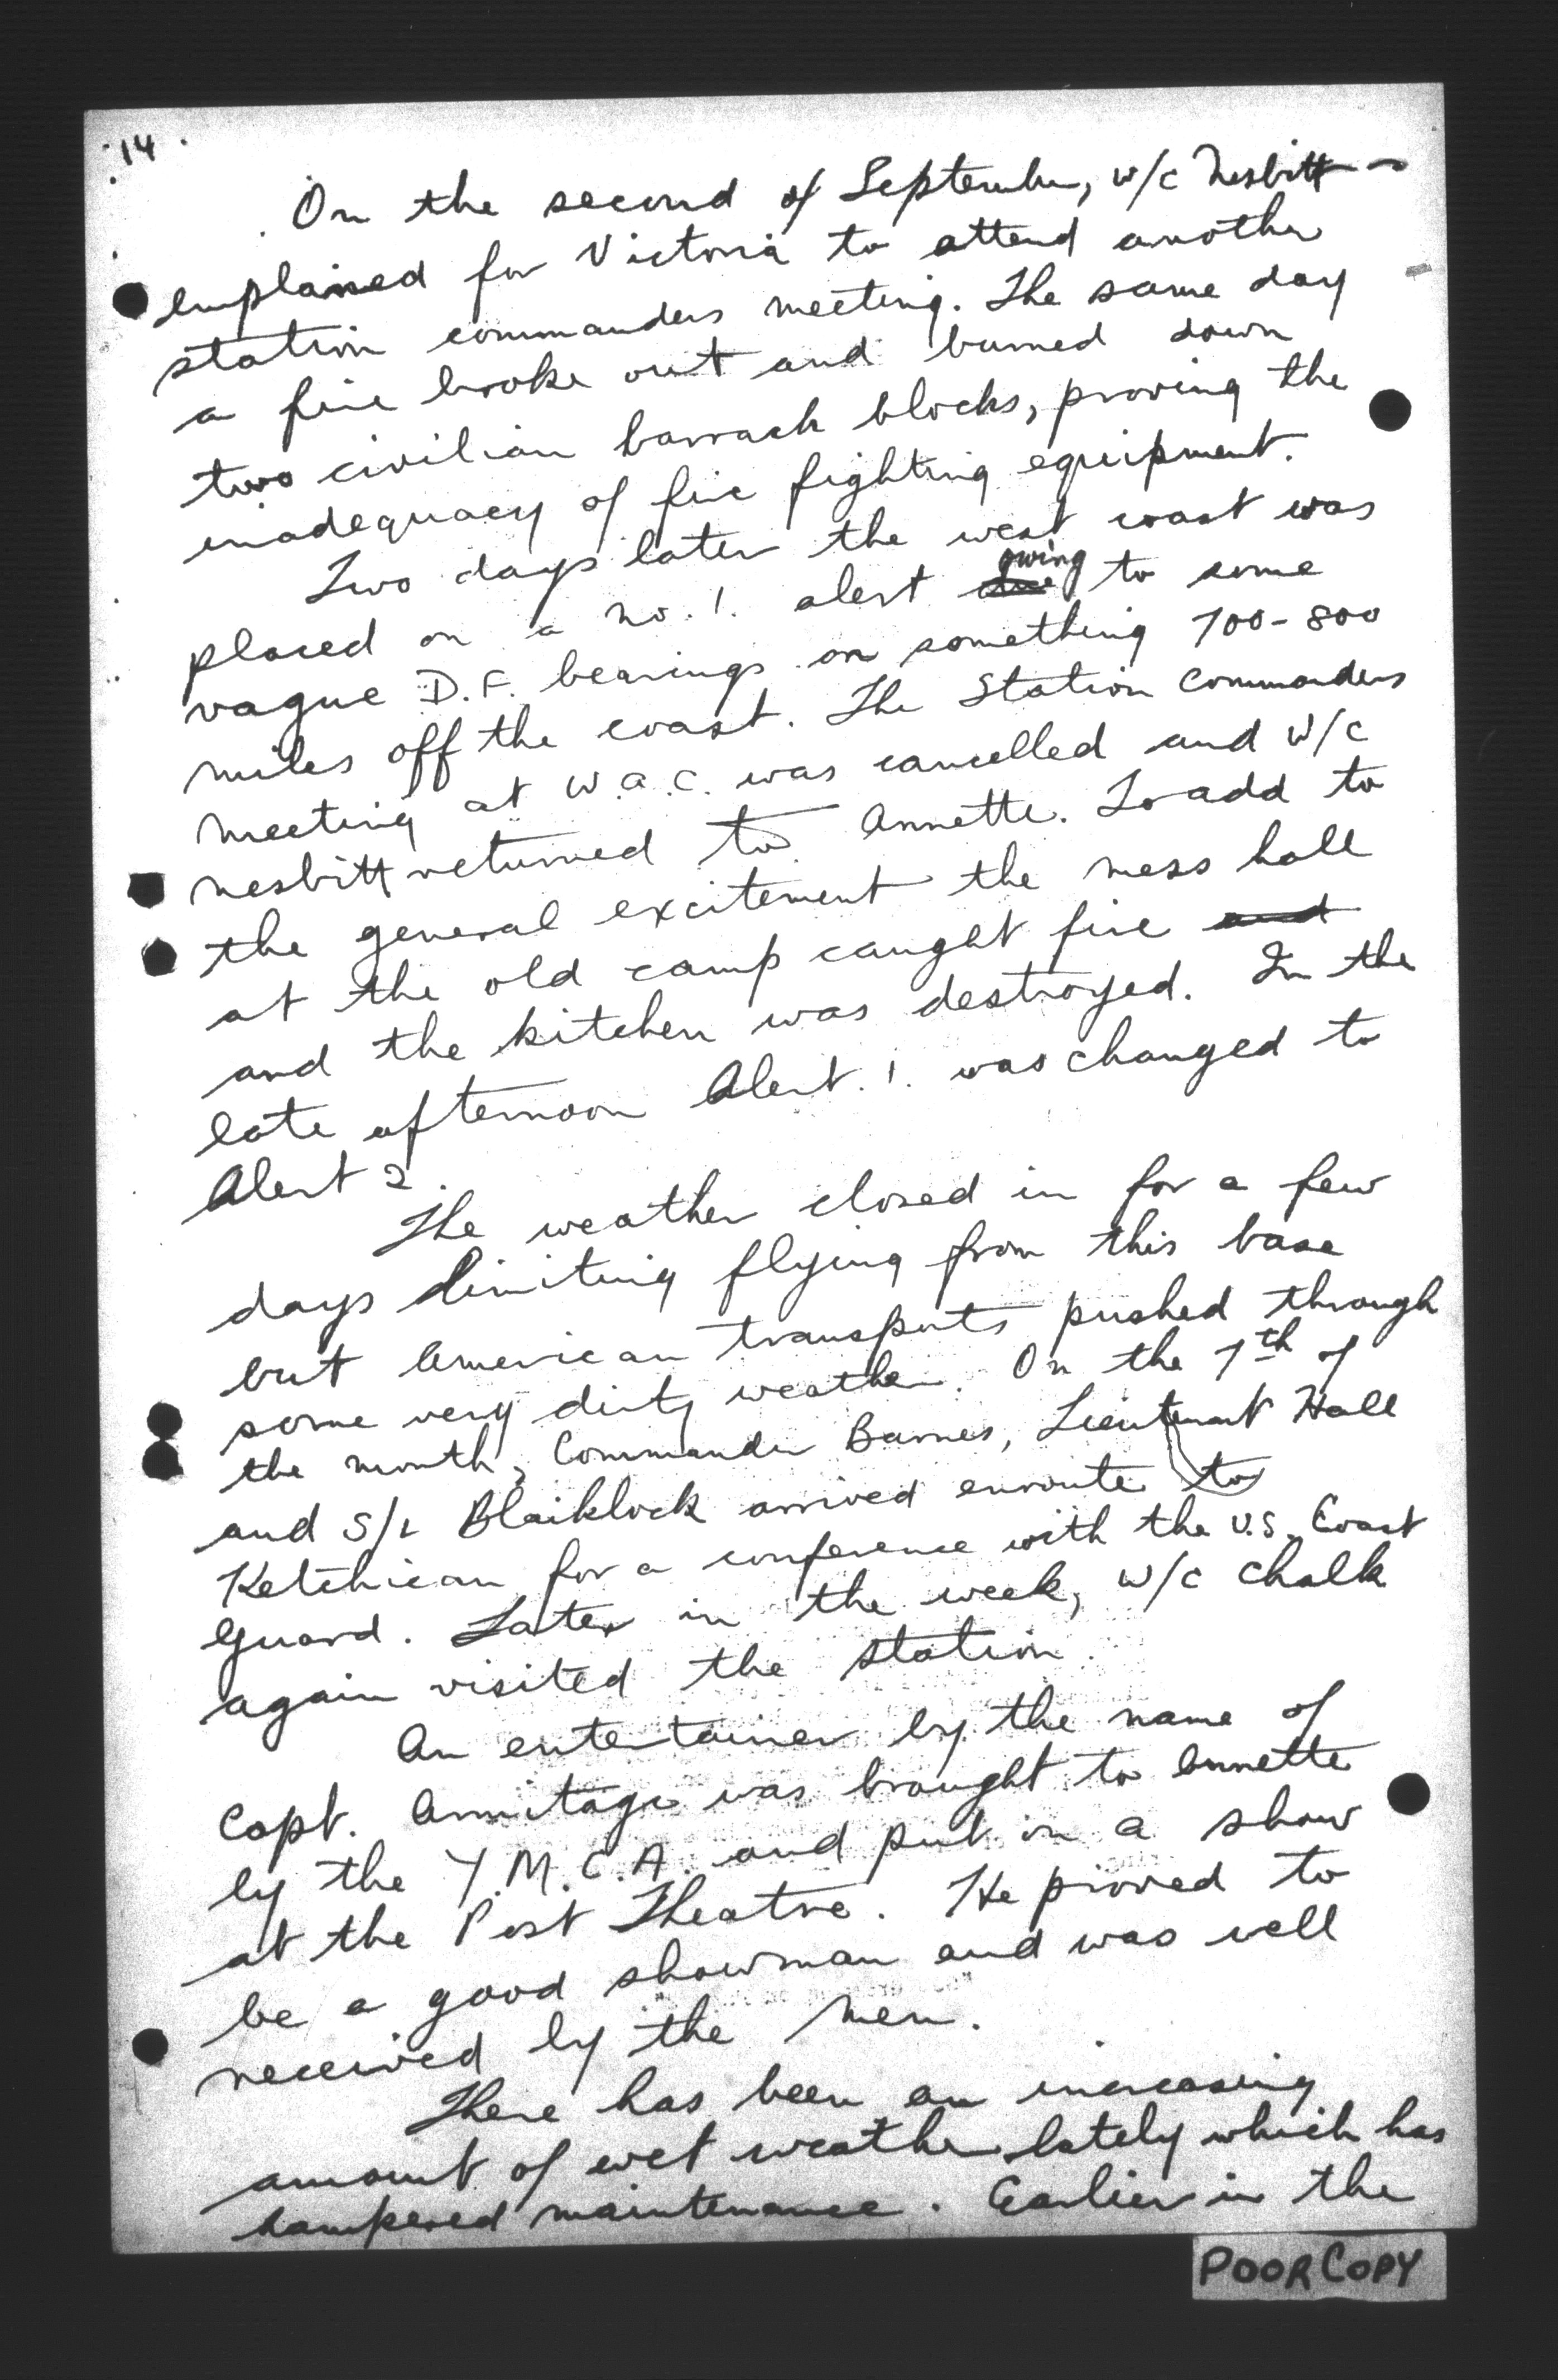 14
On the second of September, w/c Nesbitt
emplaned for Victoria to attend another
station commanders meeting. The same day
a fire broke out and burned down
two civilian barrack blocks, proving the
inadequacy of fire fighting equipment.
Two days later the west coast was
placed on a no. 1. alert due owing to some
vague D.F. bearings on something 700-800
miles off the coast. The Station Commanders
meeting at W.A.C. was cancelled and W/C
Nesbitt returned to Annette. To add to
the general excitement the mess hall
at the old camp caught fire and
and the kitchen was destroyed. In the
late afternoon Alert. 1. was changed to
Alert 2.
The weather closed in for a few
days limiting flying from this base
but American transports pushed through
some very dirty weather. On the 7th of
the month, Commander Barnes, Lieutenant Hall
and S/L Blaiklock arrived enroute to
Ketchican for a conference with the U.S. Coast
Guard. Later in the week, W/C Chalk
again visited the station.
An entertainer by the name of
Capt. Armitage was brought to Annette
by the Y.M.C.A. and put on a show
at the Post Theatre. He proved to
be a good showman and was well
received by the men.
There has been an increasing
amount of wet weather lately which has
hampered maintenance. Earlier in the
POOR COPY